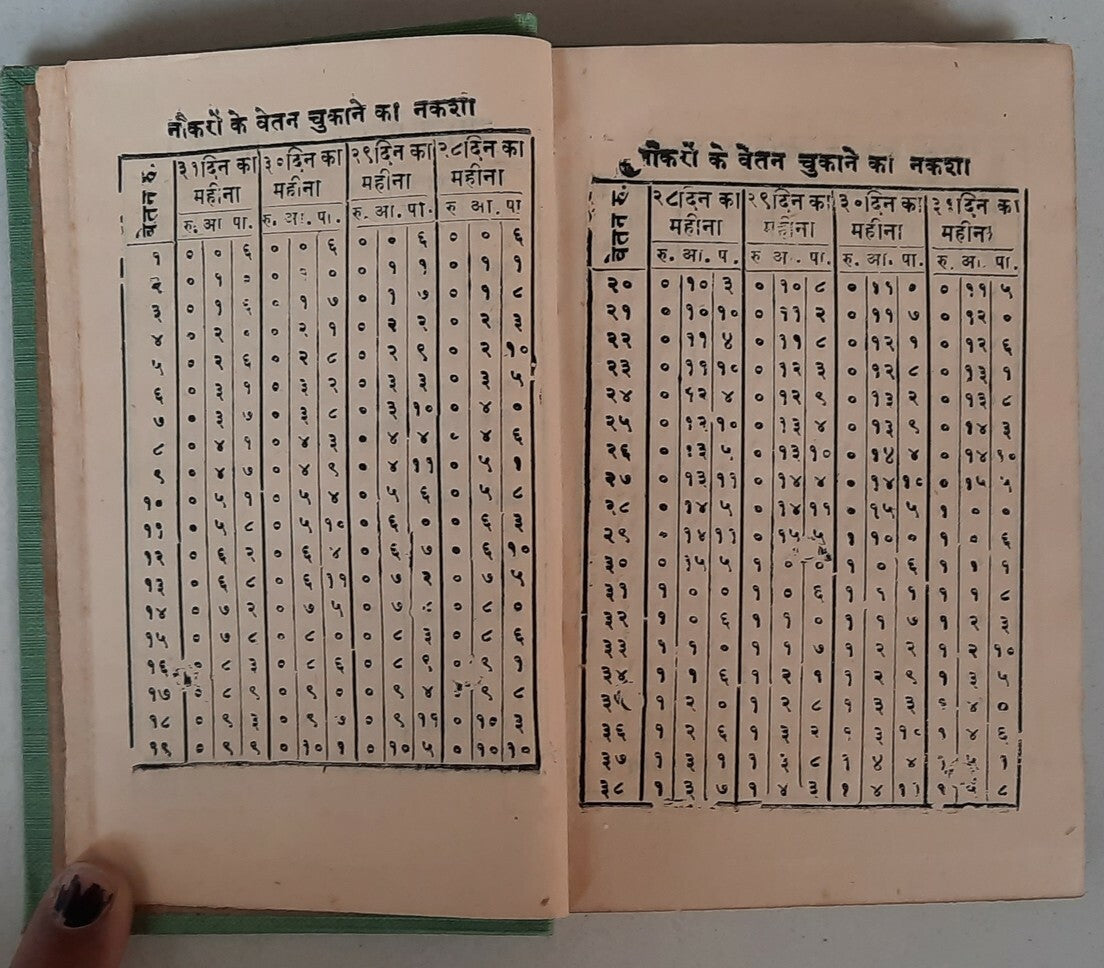 नौकरों के वेतन चुकाने का नकशा
वेतन रु. ३१दिन का ३०दिन का २९दिन का २८दिन का
महीना महीना महीना महीना
रु. आ पा. रु. आ. पा. रु. आ. पा. रु आ. पा
१ ० ० ६ ० ० ६ ० ० ६ ० ० ६
२ ० १ ० ० ० ० १ १ ० १ १
३ ० १ ६ ० १ ७ ० १ ७ ० १ ८
४ ० २ ० ० २ १ ० २ २ ० २ ३
५ ० २ ६ ० २ ८ ० २ ९ ० २ १०
६ ० ३ १ ० ३ २ ० ३ ३ ० ३ ५
७ ० ३ ७ ० ३ ८ ० ३ १० ० ४ ०
८ ० ४ १ ० ४ ३ ० ४ ४ ० ४ ६
९ ० ४ ७ ० ४ ९ ० ४ ११ ० ५ १
१० ० ५ १ ० ५ ४ ० ५ ६ ० ५ ८
११ ० ५ ८ ० ५ १० ० ६ ० ० ६ ३
१२ ० ६ २ ० ६ ४ ० ६ ७ ० ६ १०
१३ ० ६ ८ ० ६ ११ ० ७ २ ० ७ ५
१४ ० ७ २ ० ७ ५ ० ७ ० ८ ०
१५ ० ७ ८ ० ८ ० ० ८ ३ ० ८ ६
१६ ० ८ ३ ० ८ ६ ० ८ ९ ० ९ १
१७ ० ८ ९ ० ९ ० ० ९ ४ ९ ८
१८ ० ९ ३ ० ९ ७ ० ९ ११ ० १० ३
१९ ० ९ ९ ० १० १ ० १० ५ ० १० १०
नौकरों के वेतन चुकाने का नकशा
वेतन रु. २८दिन का २९दिन का ३०दिन का ३१दिन का
महीना महीना महीना महीना
रु. आ. प. रु. आ. पा. रु. आ. पा. रु. आ. पा.
२० ० १० ३ ० १० ८ ० ११ ० ० ११ ५
२१ ० १० १० ० ११ २ ० ११ ७ ० १२ ०
२२ ० ११ ४ ० ११ ८ ० १२ १ ० १२ ६
२३ ० ११ १० ० १२ ३ ० १२ ८ ० १३ १
२४ ० १२ ४ ० १२ ९ ० १३ २ ० १३ ८
२५ ० १२ १० ० १३ ४ ० १३ ९ ० १४ ३
२६ ० १३ ५ ० १३ १० ० १४ ४ ० १४ १०
२७ ० १३ ११ ० १४ ४ ० १४ १० ० १५ ५
२८ ० १४ ५ ० १४ ११ ० १५ ५ १ ० ०
२९ ० १४ ११ ० १५ ५ १ १० ० १ ० ६
३० ० १५ ५ १ ० ० १ ० ६ १ १ १
३१ १ ० ० १ ० ६ १ १ १ १ १ ८
३२ १ ० ६ १ १ ० १ १ ७ १ २ ३
३३ १ १ ० १ १ ७ १ २ २ १ २ १०
३४ १ १ ६ १ २ १ १ २ ९ १ ३ ५
१ २ ० १ २ ८ १ ३ ३ १ ४ ०
३६ १ २ ६ १ ३ २ १ ३ १० १ ४ ६
३७ १ ३ १ १ ३ ८ १ ४ ४ १ १
३८ १ ३ ७ १ ४ ३ १ ४ ११ १ ८